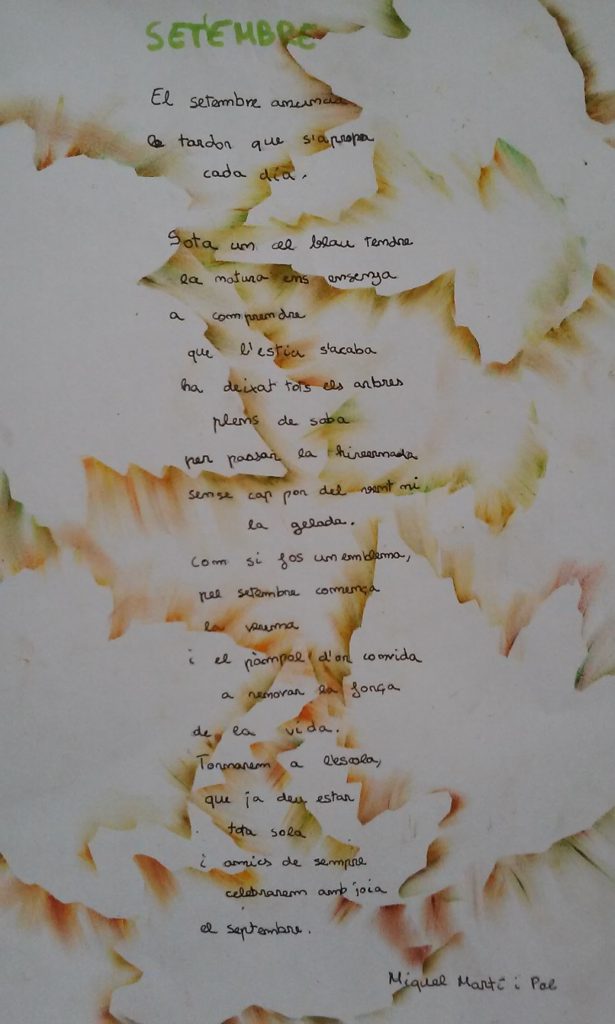 SETEMBRE
El setembre anuncia
la tardor que s'apropa
cada dia.
Sota un cel blau tendre
la natura ens ensenya
a comprendre
que l'estiu s'acaba
ha deixat tots els arbres
plens de saba
per passar la hivernada
sense cap por del vent ni
la gelada.
Com si fos un emblema,
pel setembre comença
la verema
i el pàmpol d'or convida
a renovar la força
de la vida.
Tornarem a l'escola,
que ja deu estar
tota sola
i amics de sempre
celebrarem amb joia
el septembre.
Miquel Martí i Pol